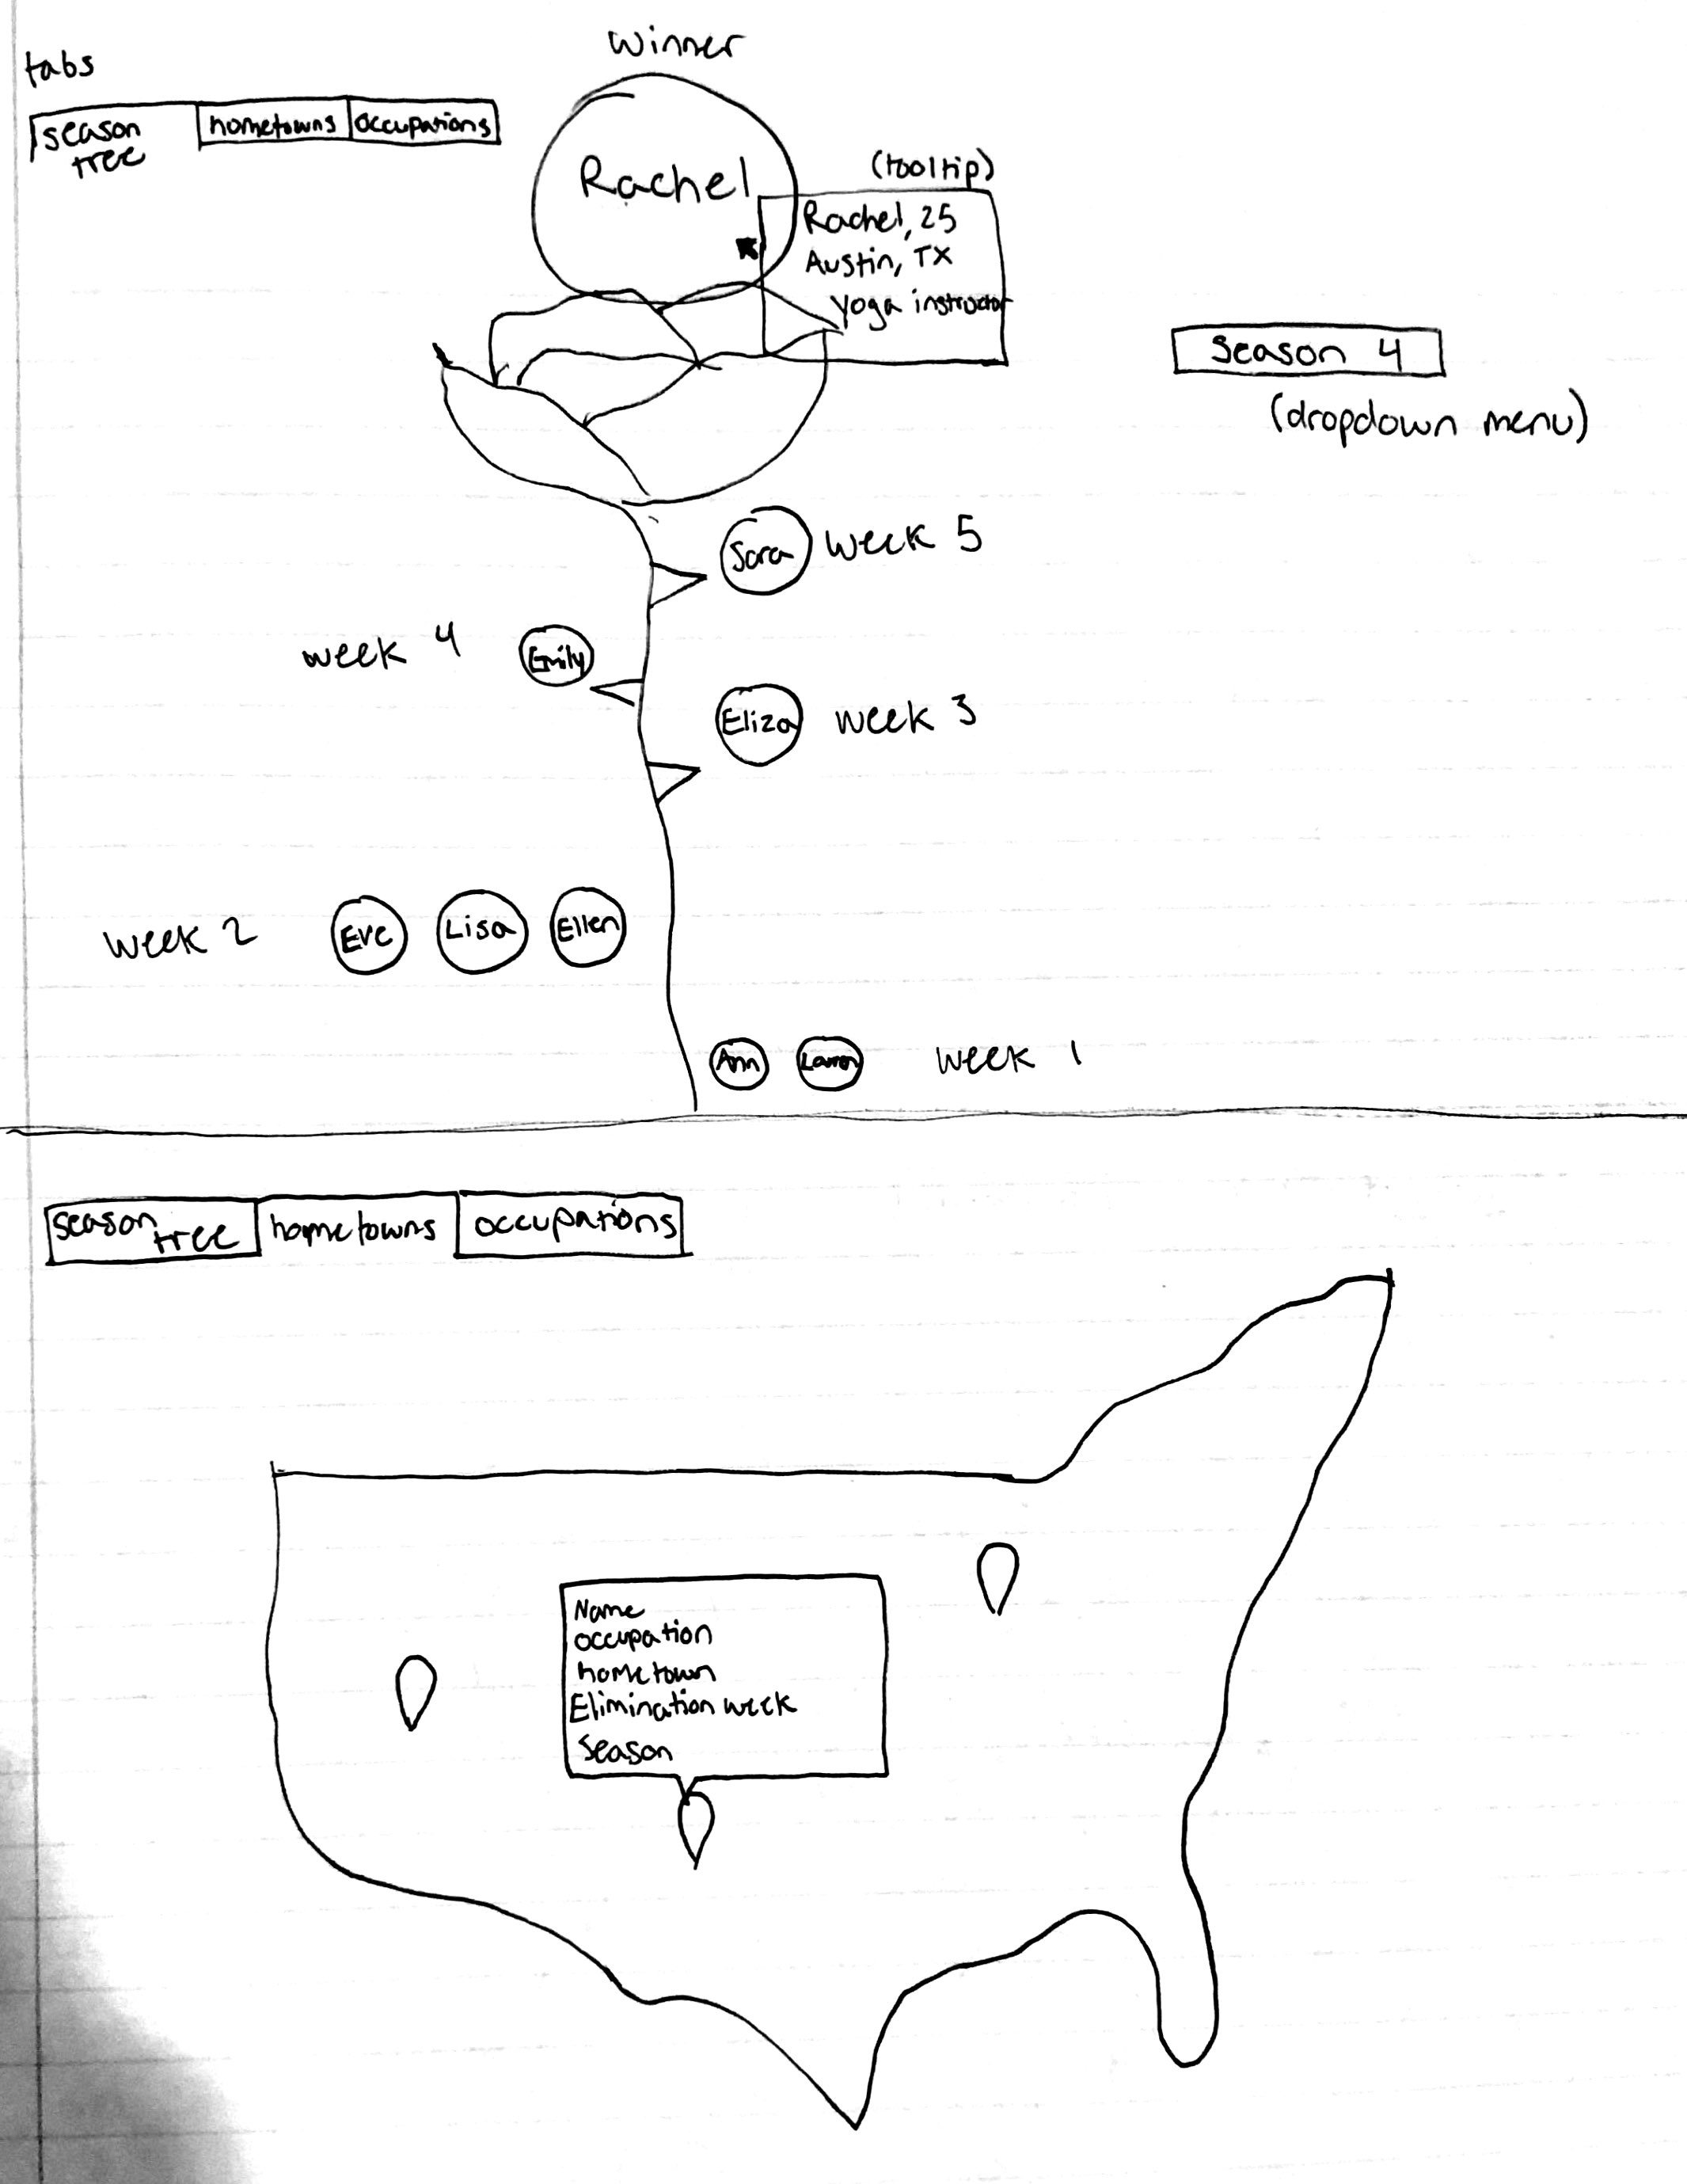 winner
tabs
season
tree
hometowns
occupations
Rachel
(tooltip)
Rachel, 25
Austin, TX
yoga instructor
season 4
(dropdown menu)
Sara
week 5
week 4
Emily
Eliza
week 3
week 2
Eve
Lisa
Ellen
Ann
Lauren
week 1
season
tree
hometowns
occupations
Name
occupation
hometown
Elimination week
Season